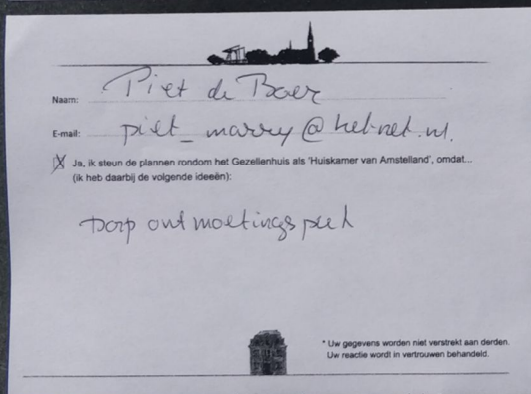 Naam: Piet de Boer
E-mail: piet_marry@hetnet.nl.
X Ja, ik steun de plannen rondom het Gezellenhuis als 'Huiskamer van Amstelland', omdat...
(ik heb daarbij de volgende ideeën):
Dorp ontmoetings punt
* Uw gegevens worden niet verstrekt aan derden.
Uw reactie wordt in vertrouwen behandeld.